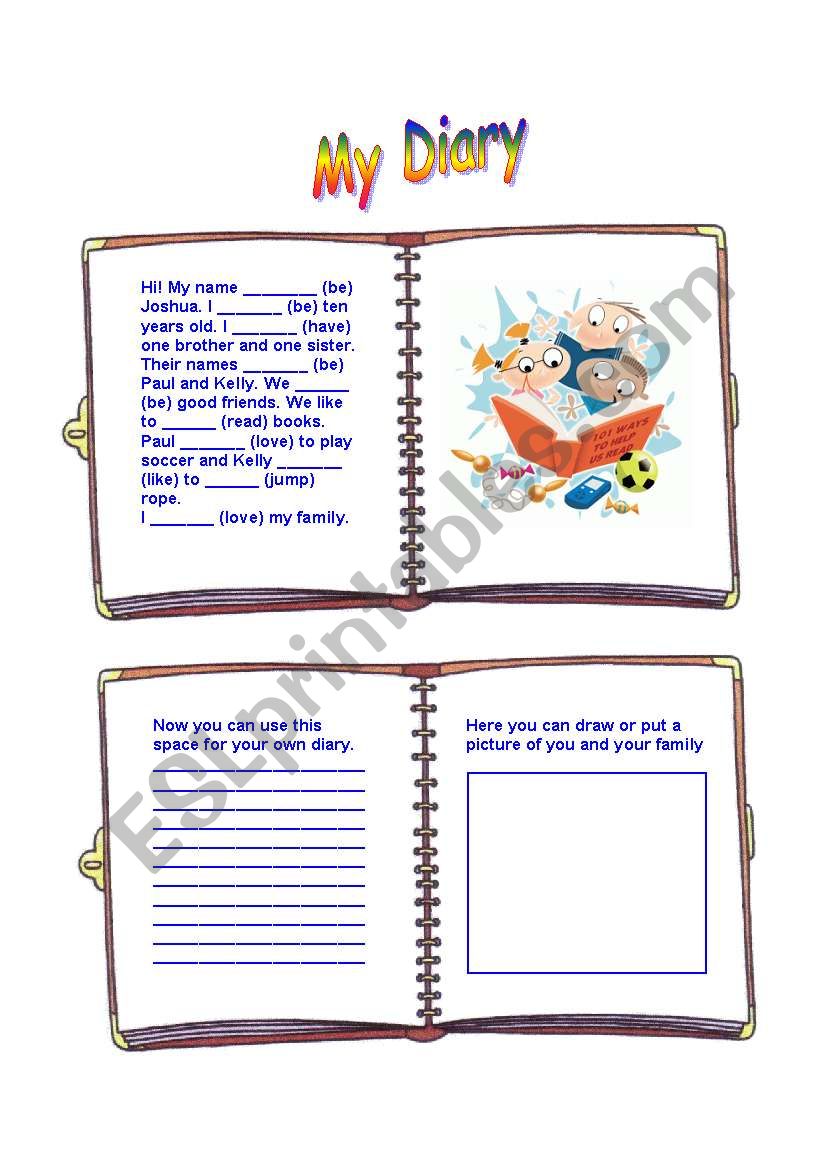 My Diary
Hi! My name ________ (be)
Joshua. I _______ (be) ten
years old. I _______ (have)
one brother and one sister.
Their names _______ (be)
Paul and Kelly. We ______
(be) good friends. We like
to ______ (read) books.
Paul _______ (love) to play
soccer and Kelly _______
(like) to ______ (jump)
rope.
I _______ (love) my family.
101 WAYS
TO HELP
US READ
Now you can use this
space for your own diary.
Here you can draw or put a
picture of you and your family
ESLprintables.com